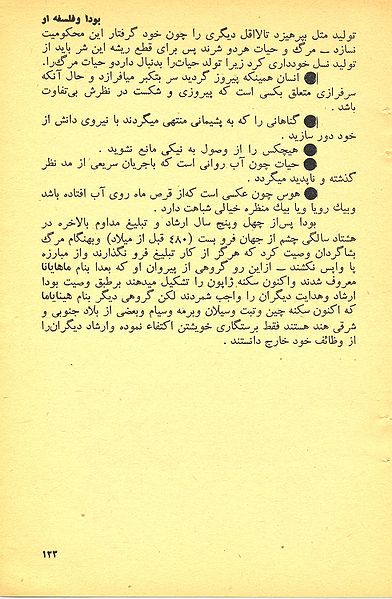 بودا وفلسفه او
تولید مثل بپرهیزد تالااقل دیگری را چون خود گرفتار این محکومیت
نسازد ــ مرگ و حیات هردو شرند پس برای قطع ریشه این شر باید از
تولید نسل خودداری کرد زیرا تولد حیات‌را بدنبال داردو حیات مرگ‌را.
● انسان همینکه پیروز گردید سر بتکبر میافرازد و حال آنکه
سرفرازی متعلق بکسی است که پیروزی و شکست در نظرش بی‌تفاوت
باشد .
● گناهانی را که به پشیمانی منتهی میگردند با نیروی دانش از
خود دور سازید .
● هیچکس را از وصول به نیکی مانع نشوید .
● حیات چون آب روانی است که باجریان سریعی از مد نظر
گذشته و ناپدید میگردد .
● هوس چون عکسی است که‌از قرص ماه روی آب افتاده باشد
وبیك رویا ویا بیك منظره خیالی شباهت دارد .
بودا پس‌از چهل وپنج سال ارشاد و تبلیغ مداوم بالاخره در
هشتاد سالگی چشم از جهان فرو بست (٤٨٠ قبل از میلاد) وبهنگام مرگ
بشاگردان وصیت کرد که هرگز از کار تبلیغ فرو نگذارند واز مبارزه
پا واپس نکشند ــ ازاین رو گروهی از پیروان او که بعدا بنام ماهایانا
معروف شدند واکنون سکنه ژاپون را تشکیل میدهند برطبق وصیت بودا
ارشاد وهدایت دیگران را واجب شمردند لکن گروهی دیگر بنام هینایاما
که اکنون سکنه چین وتبت وسیلان وبرمه وسیام وبعضی از بلاد جنوبی و
شرقی هند هستند فقط برستگاری خویشتن اکتفاء نموده وارشاد دیگران‌را
از وظائف خود خارج دانستند .
١٢٣